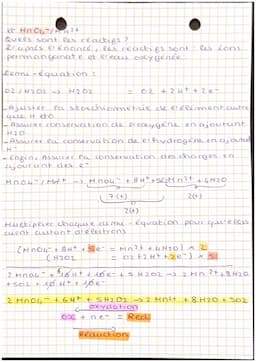 et MnO4-/Mn2+
Quels sont les réactifs ?
D'après l'énoncé, les réactifs sont : les ions
permanganate et l'eau oxygénée.
Demi-équation :
O2/H2O2 → H2O2 = O2 + 2H+ + 2e-
-Ajuster la stoechiométrie de l'élément autre
que H et O
-Assurer conservation de l'oxygène en ajoutant
H2O
-Assurer la conservation de l'hydrogène en ajoutant
H+
-Enfin, Assurer la conservation des charges en
ajoutant des e-
MnO4-/Mn2+ → MnO4- + 8H+ + 5e- Mn2+ + 4H2O
7(+) 2(+)
2(+)
Multiplier chaque demi-équation pour qu'elles
aient autant d'électrons
(MnO4- + 8H+ + 5e- = Mn2+ + 4H2O) × 2
(H2O2 = O2 + 2H+ + 2e-) × 5
2MnO4- + 16H+ + 10e- + 5H2O2 → 2Mn2+ + 8H2O
+5O2 + 10H+ + 10e-
2MnO4- + 6H+ + 5H2O2 → 2Mn2+ + 8H2O + 5O2
oxydation
Ox + ne- = Red
réduction